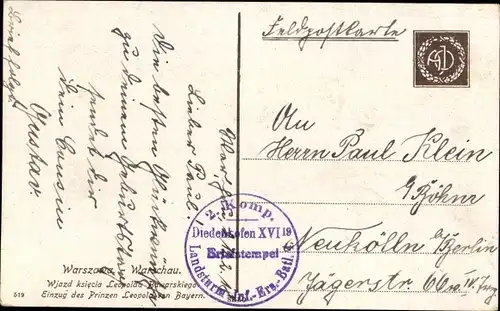 Feldpostkarte
An
Herrn Paul Klein
b/Böhm
Neukölln b/Berlin
Jägerstr 66
Lieber Paul!
Die besten Glückwünsche
zu deinem Geburtstage
sendet dir
Dein Cousin
Gustav
Brief folgt
2. Komp.
Diedenhofen XVI 19
Briefstempel
Landsturm-Inf.-Ers.-Batl.
Warszawa. Warschau.
Wjazd księcia Leopolda Bawarskiego
Einzug des Prinzen Leopold von Bayern.
519